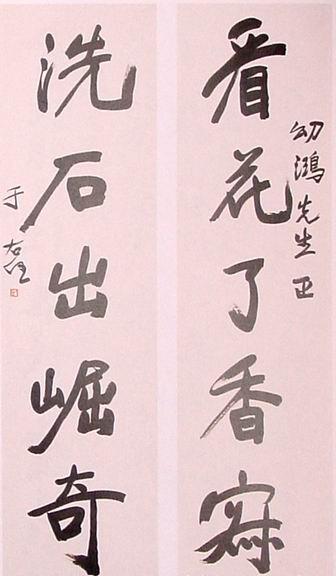 看花了香寐
幼鴻先生正
洗石出崛奇
于右任